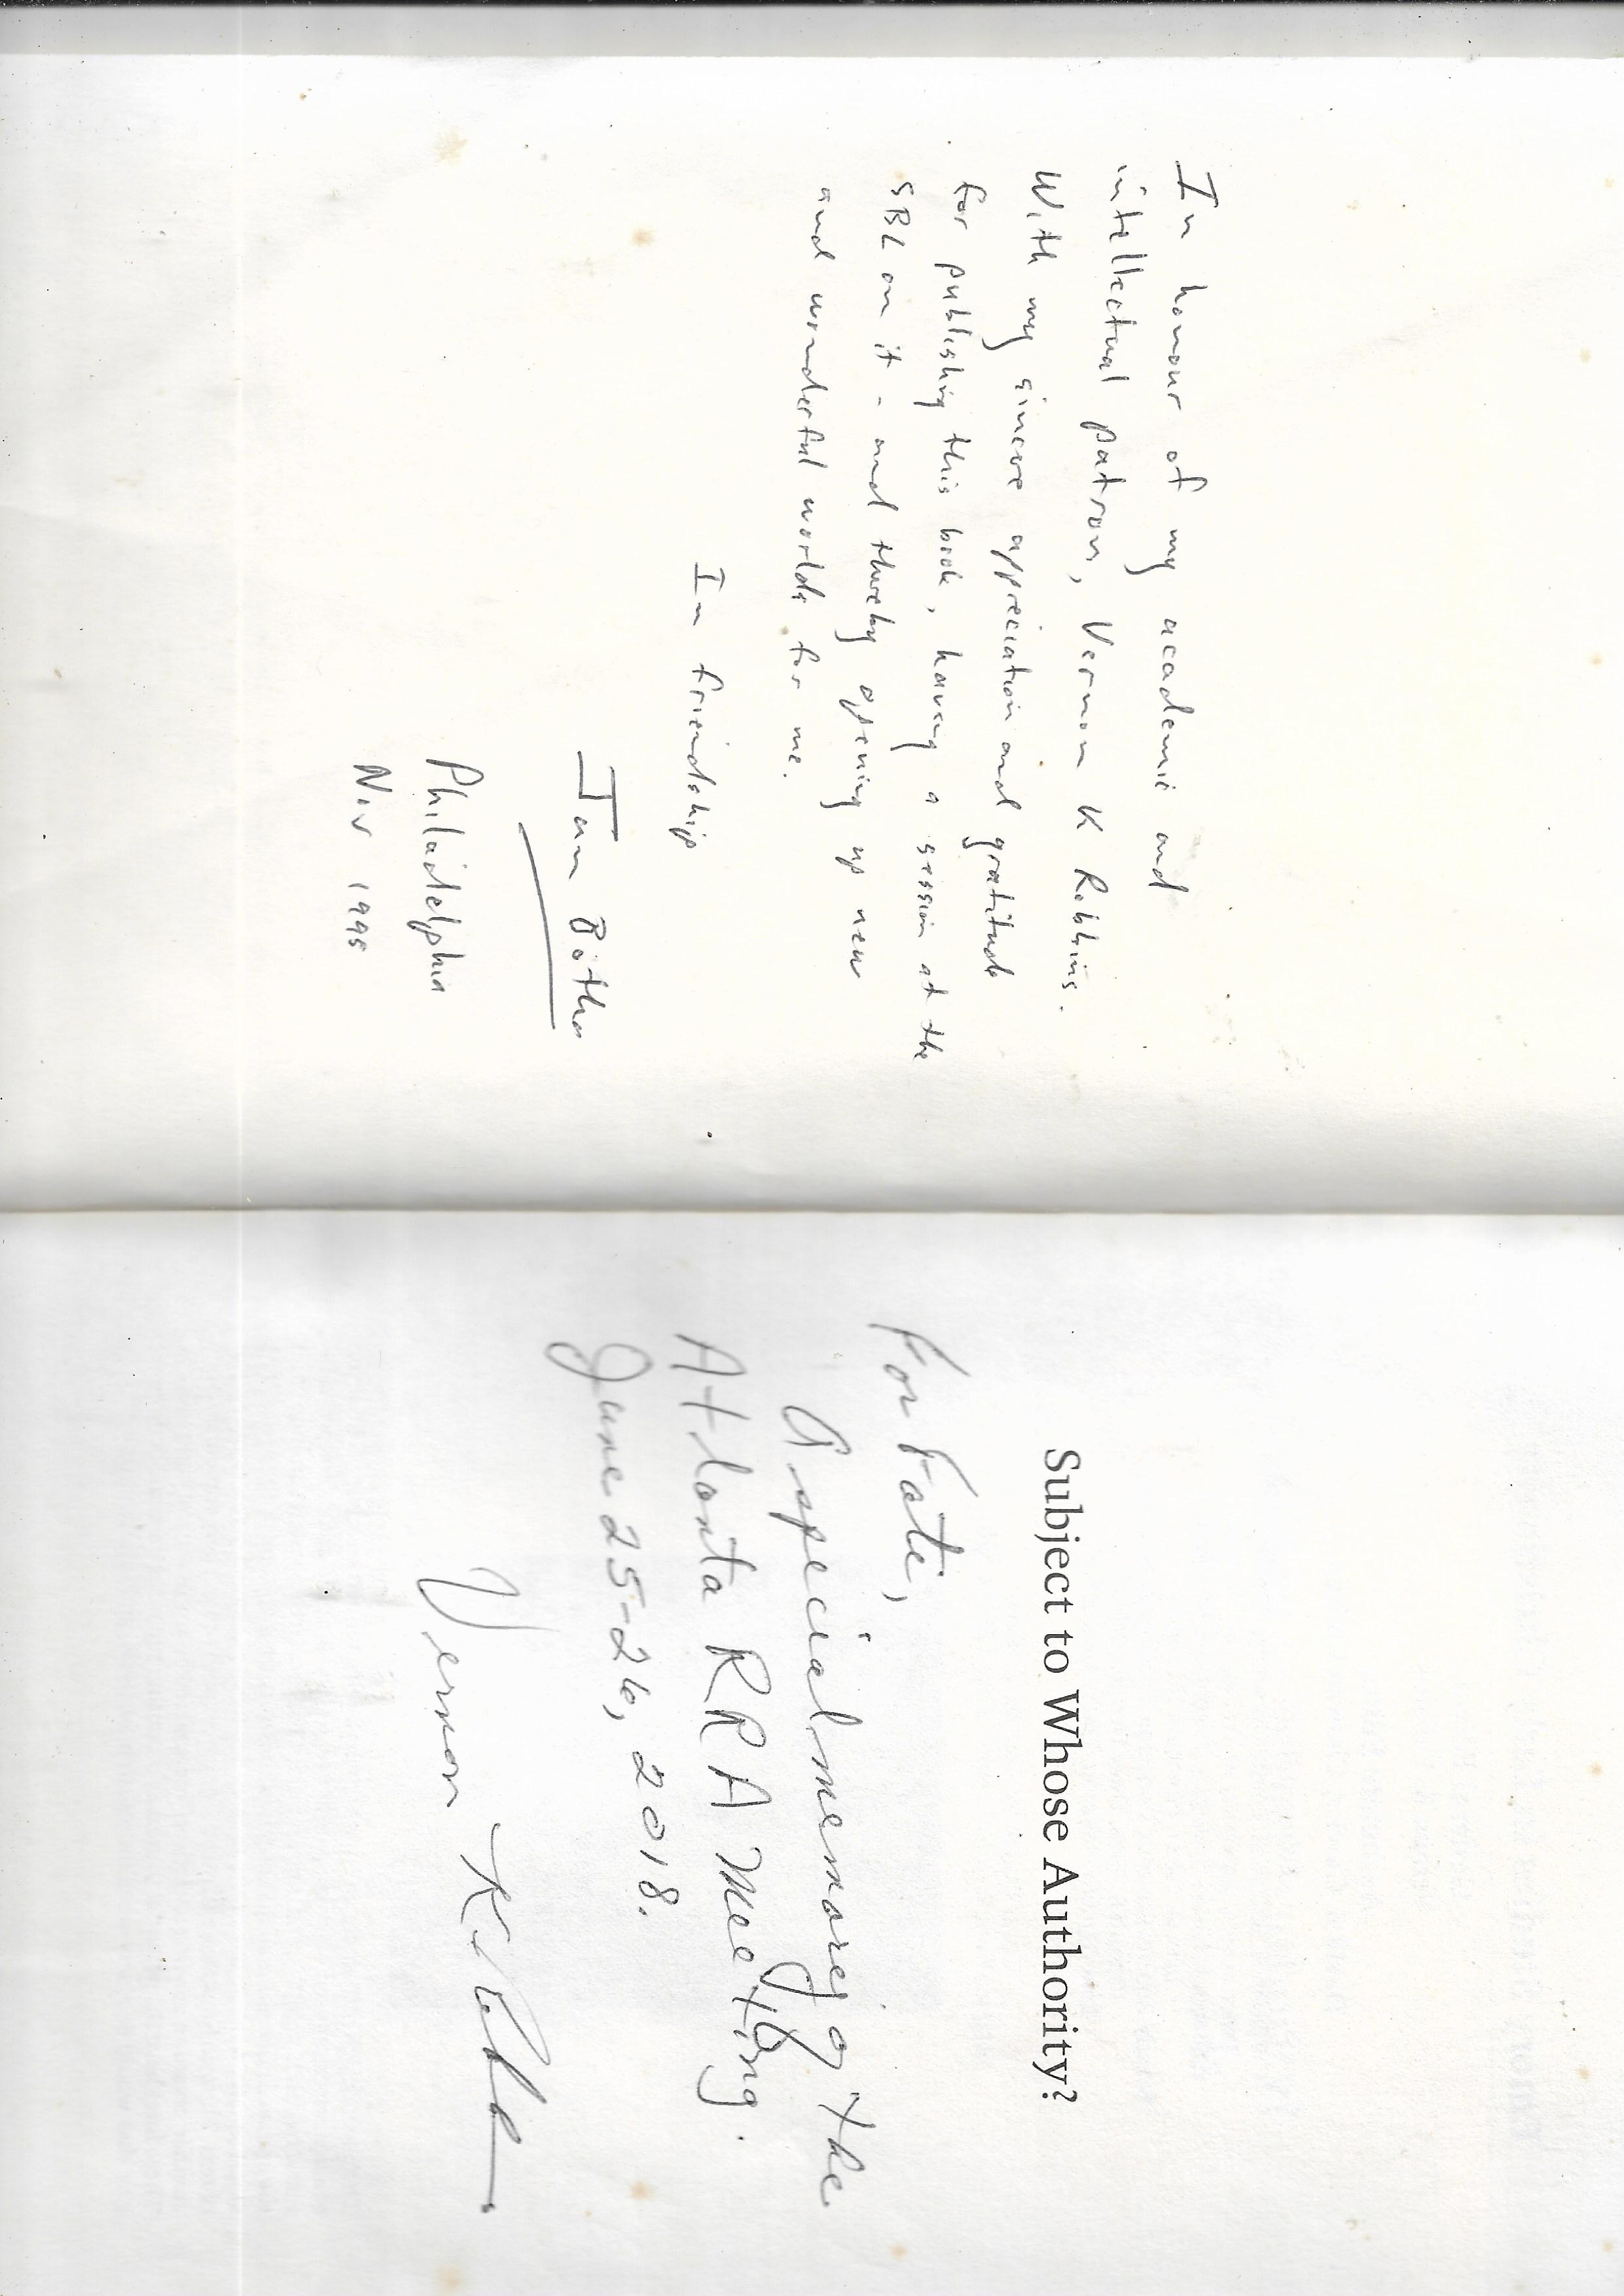 In honour of my academic and
intellectual patron, Vernon K Robbins.
With my sincere appreciation and gratitude
for publishing this book, having a session at the
SBL on it - and thereby opening up new
and wonderful worlds for me.
In friendship
Jan Botha
Philadelphia
Nov 1995
Subject to Whose Authority?
For Fati,
A special memory of the
Atlanta RRA Meeting.
June 25-26, 2018.
Vernon K. Robbins